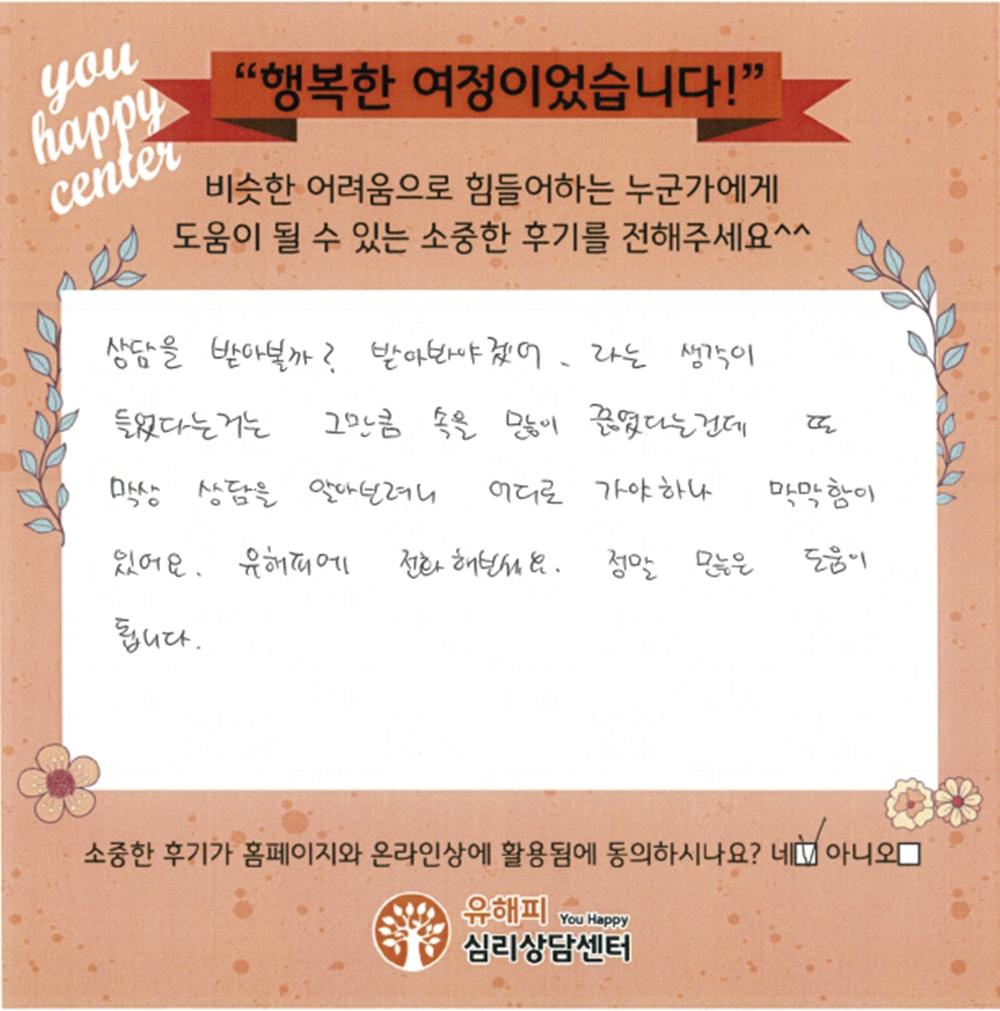 you
happy
center
“행복한 여정이었습니다!”
비슷한 어려움으로 힘들어하는 누군가에게
도움이 될 수 있는 소중한 후기를 전해주세요^^
상담을 받아볼까? 받아봐야겠어. 라는 생각이
들었다는거는 그만큼 속을 많이 끓였다는건데 또
막상 상담을 알아보려니 어디로 가야하나 막막함이
있어요. 유해피에 전화해보세요. 정말 많은 도움이
됩니다.
소중한 후기가 홈페이지와 온라인상에 활용됨에 동의하시나요? 네☑ 아니오☐
유해피 You Happy
심리상담센터